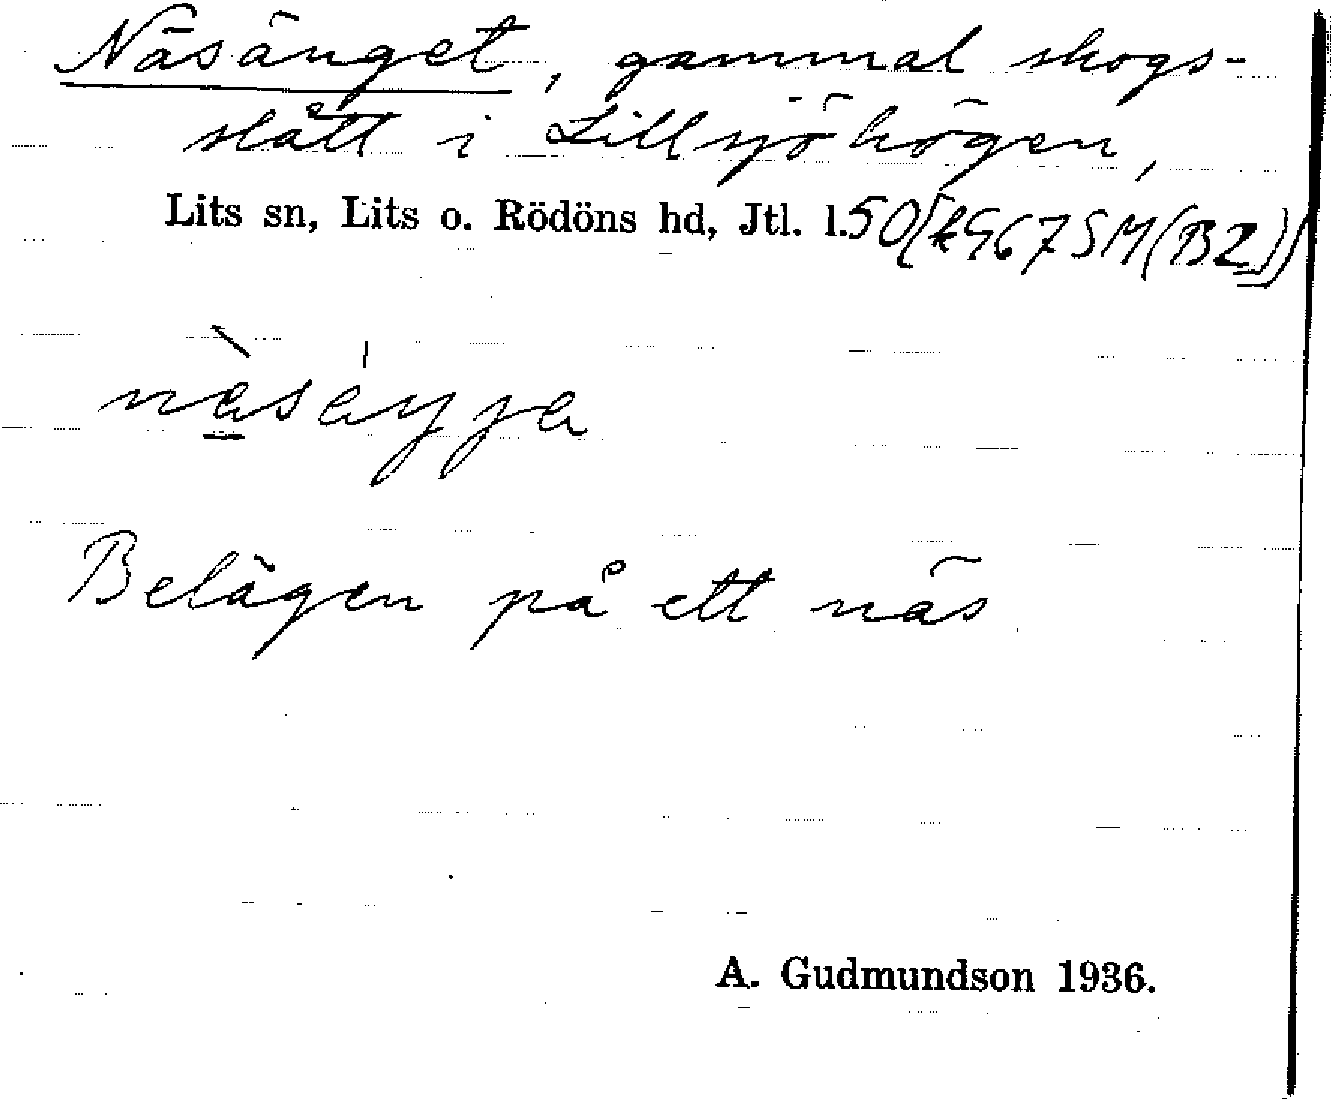 Näsänget, gammal skogs-
slått i Lillsjöhögen,
Lits sn, Lits o. Rödöns hd, Jtl. l. 50
Belägen på ett näs
A. Gudmundson 1936.